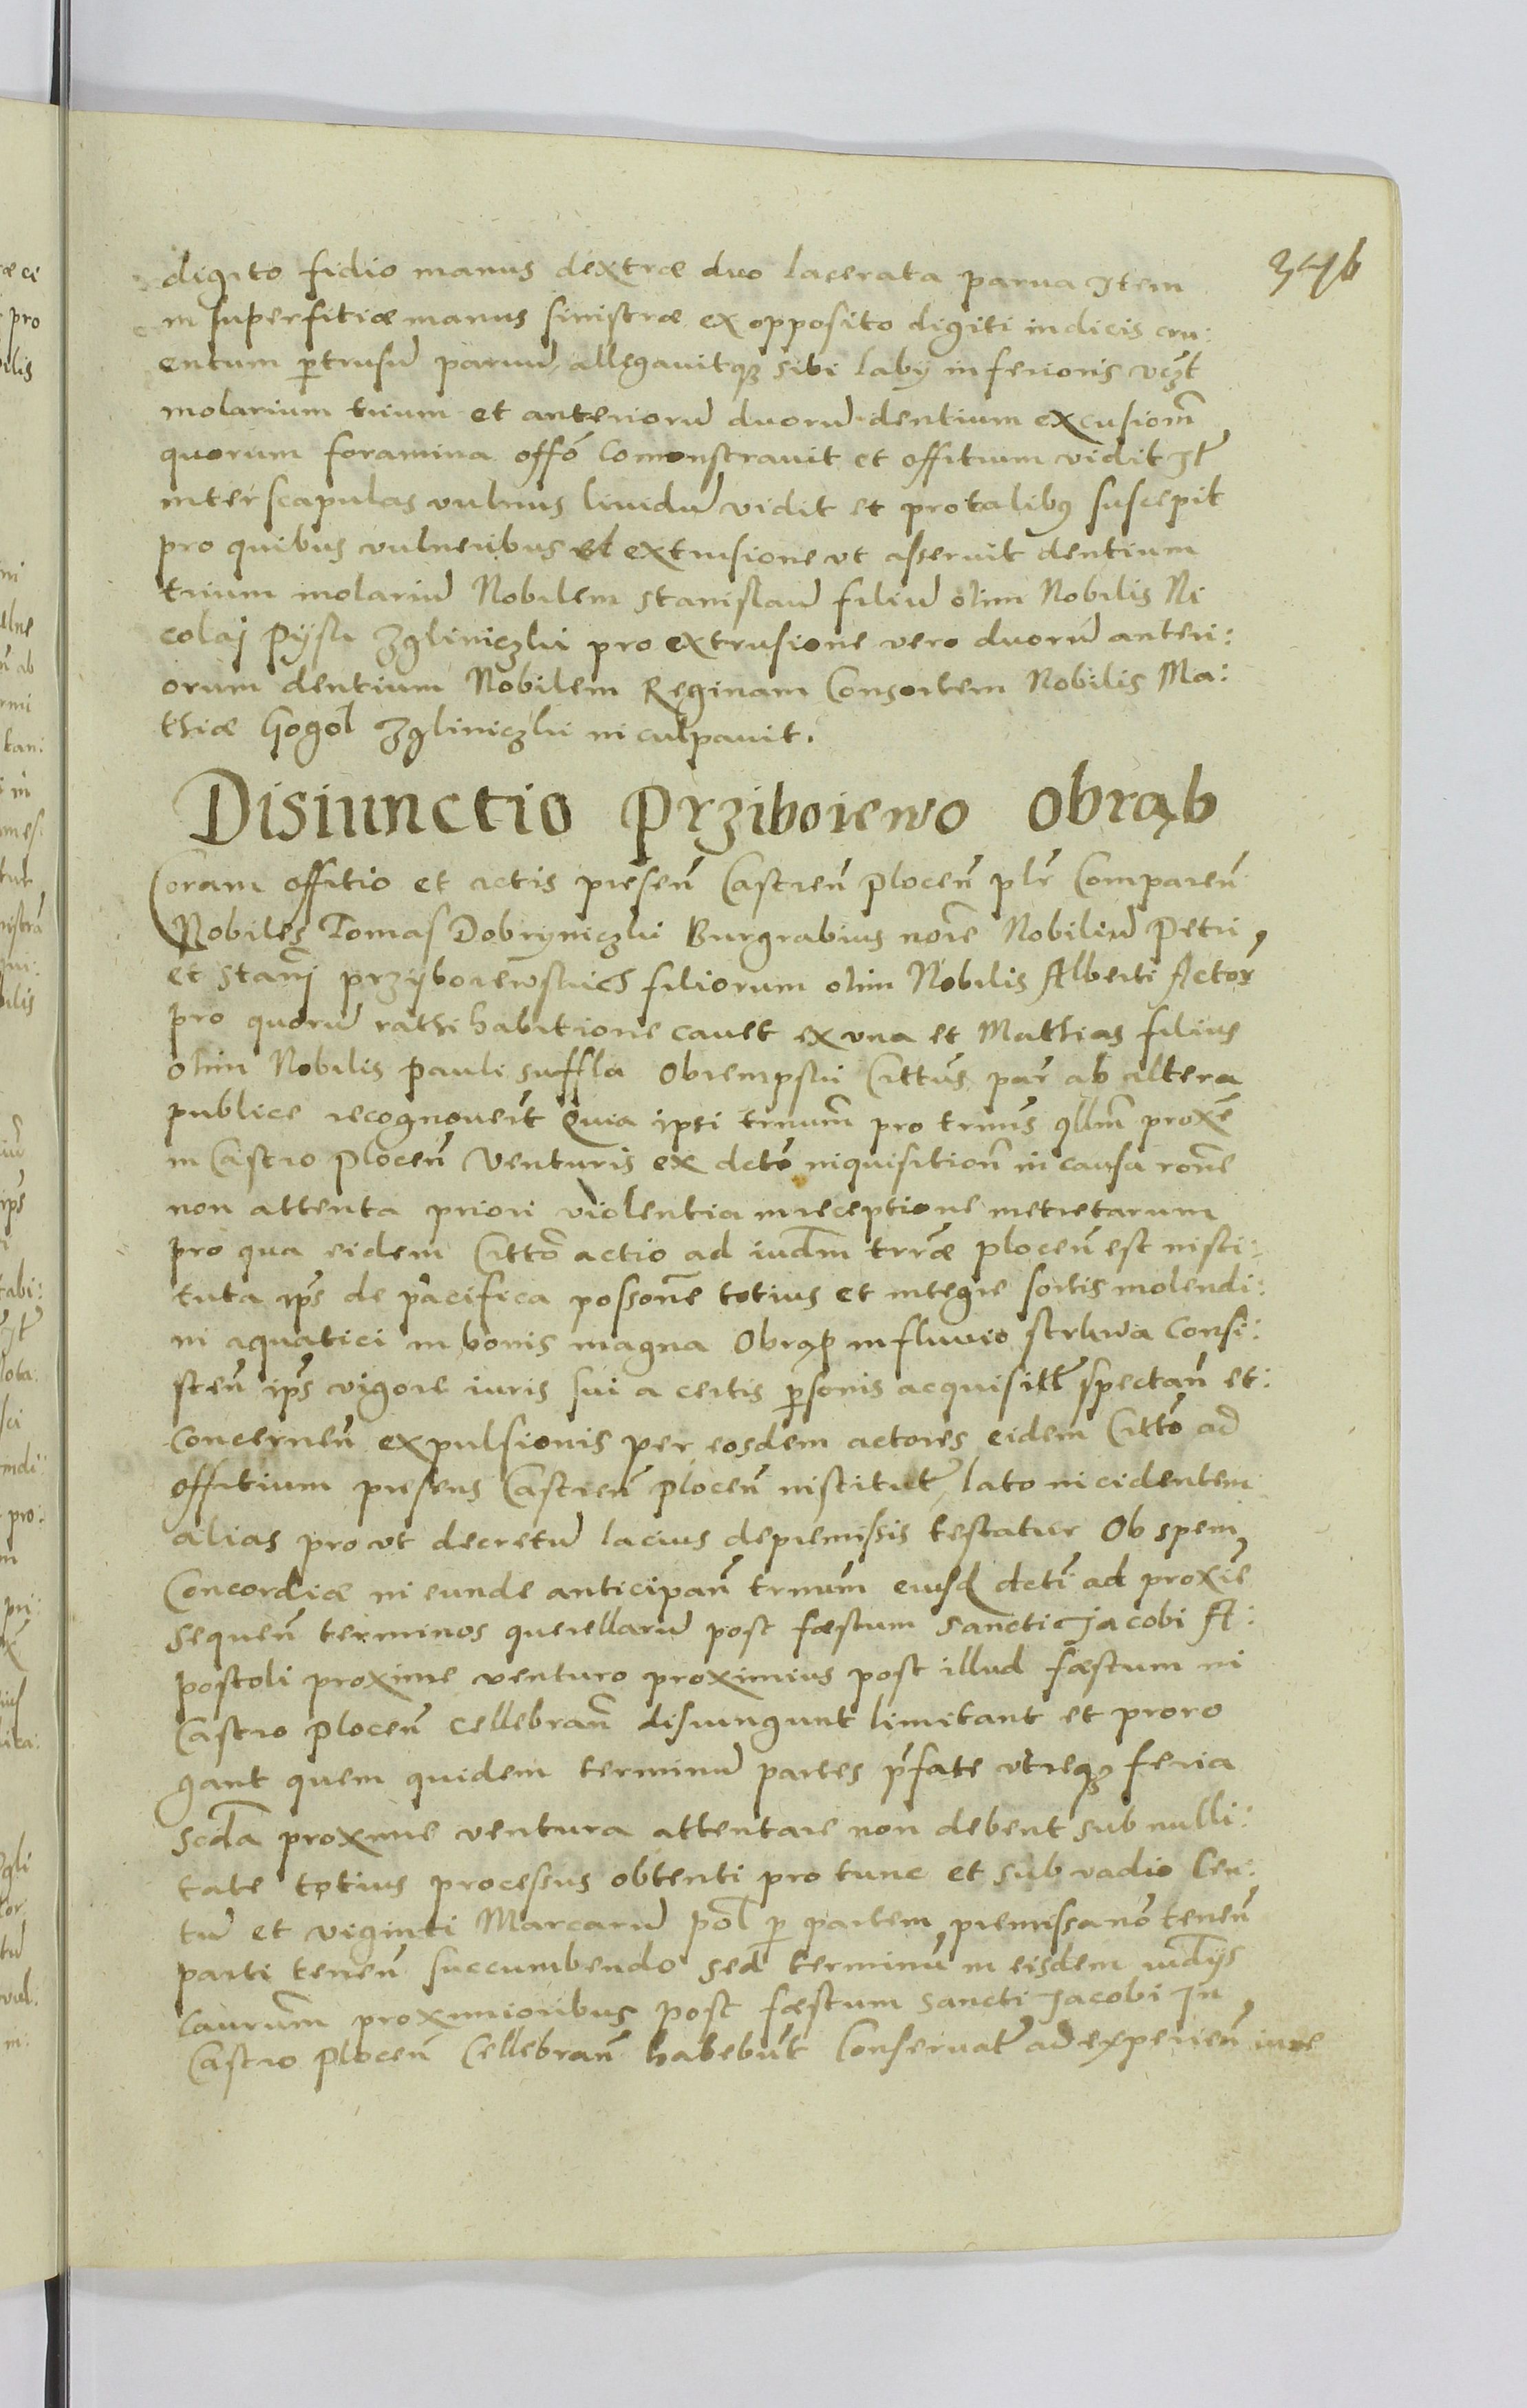 346
digito fidio manus dextræ duo lacerata parua Item
in superfitiæ manus sinistræ ex opposito digiti indicis cru:
entum ptrusū paruū, allegauitqȝ sibi labÿ inferioris vczt
molarium trium et anteriorū duorū dentium excusionē
quorum foramina offō Comonstrauit et offitium vidit Itē
inter scapulas vulnus liuidū vidit et pro talibȝ suscepit
pro quibus vulneribus et extrusione vt asseruit dentium
trium molariū Nobilem Stanislaū filiū olim Nobilis Ni
colaj Pysk Zgliniczki pro extrusione vero duorū anteri:
orum dentium Nobilem Reginam Consortem Nobilis Ma:
thiæ Gogol Zgliniczki inculpauit.
Disiunctio Prziboiewo Obrąb
Coram offitio et actis presen̄ Castren̄ Plocen̄ plr̄ Comparen̄
Nobiles Tomas Dobryniczki Burgrabius noīe Nobiliū Petri
et Stanj Przyborewskich filiorum olim Nobilis Alberti Actor̄
pro quorū rathihabitione cauet ex vna et Mathias filius
olim Nobilis Pauli Suffla Obrempski Cittūs par̄ ab altera
publice recognouerūt Quia ipsi trnum̄ pro trnis̄ qllm̄ proxē
in Castro Plocen̄ Venturis ex dctō inquisition̄ in causa rōne
non attenta priori violentia in receptione metretarum
pro qua eidem Cittō actio ad iudm̄ trræ Plocen̄ est insti:
tuta ip̄s de pacifica possōne totius et integre sortis molendi:
ni aquatici in bonis magna Obrąp in fluvio Strkwa Consi:
sten̄ ip̄s vigore iuris sui a certis psonis acquisitt̄ spectan̄ et:
Concernen̄ expulsionis per eosdem actores eidem Cittō ad
offitium presens Castren̄ Plocen̄ institut̄ lato incidentem
alias prout decretū lacius de premissis testatur Ob spem
Concordiæ ineunde anticipan̄ trnum̄ eiusd dcti ad proxīe
sequen̄ terminos querellarū post fæstum Sancti Jacobi A:
postoli proxime venturo proximius post illud fæstum in
Castro Plocen̄ cellebran̄ disiungunt limitant et proro
gant quem quidem terminū partes pfate vtreqȝ feria
scda proxime ventura attentare non debent sub nulli:
tate totius processus obtenti pro tunc et sub vadio Cen:
tū et viginti Marcarū Pol p partem premissa nō tenen̄
parti tenen̄ succumbendo sed terminū in eisdem iudiÿs
Caurum̄ proximioribus post fæstum Sancti Jacobi In
Castro Plocen̄ Cellebran̄ habebūt Conseruat̄ ad experien̄ iure